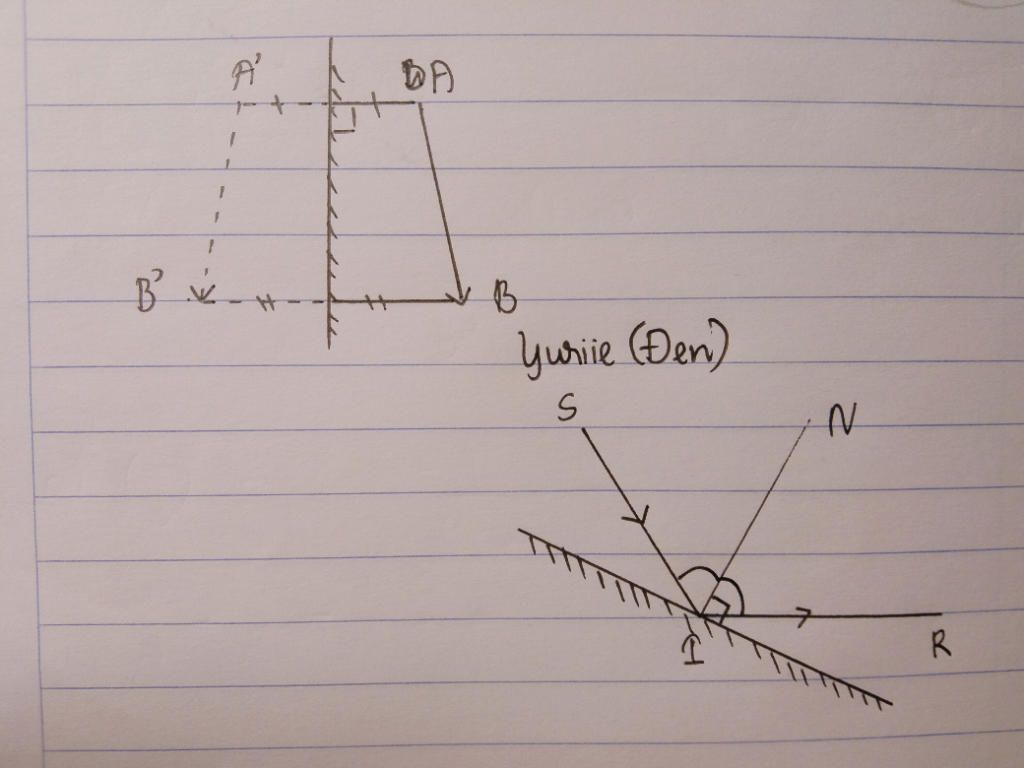 A' A
B' B
Yuriie (Đen)
S N
I R